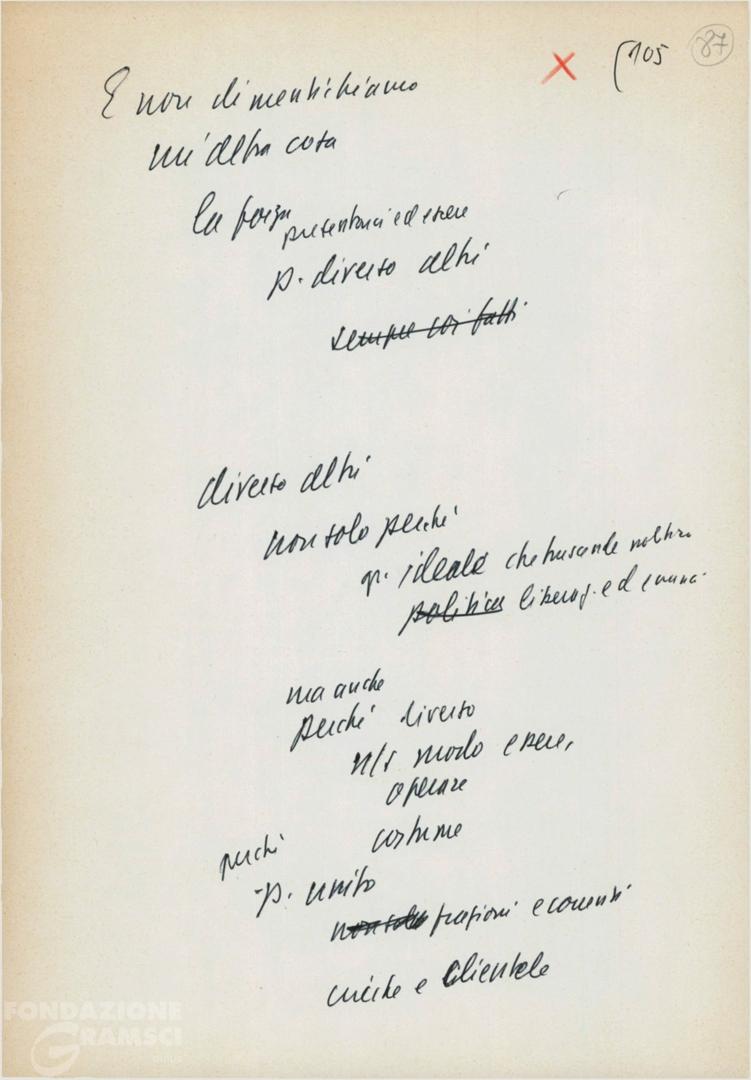 (105 87
E non dimentichiamo
un'altra cosa
la forza
presentarci ed essere
p. diverso altri
sempre così fatti
diverso altri
non solo perché
gr. ideale che trascende
politica ed
ma anche
perché diverso
n/s modo essere,
operare
costume
perché
-p. unito
non solo frazioni e correnti
cricche e clientele
FONDAZIONE
GRAMSCI